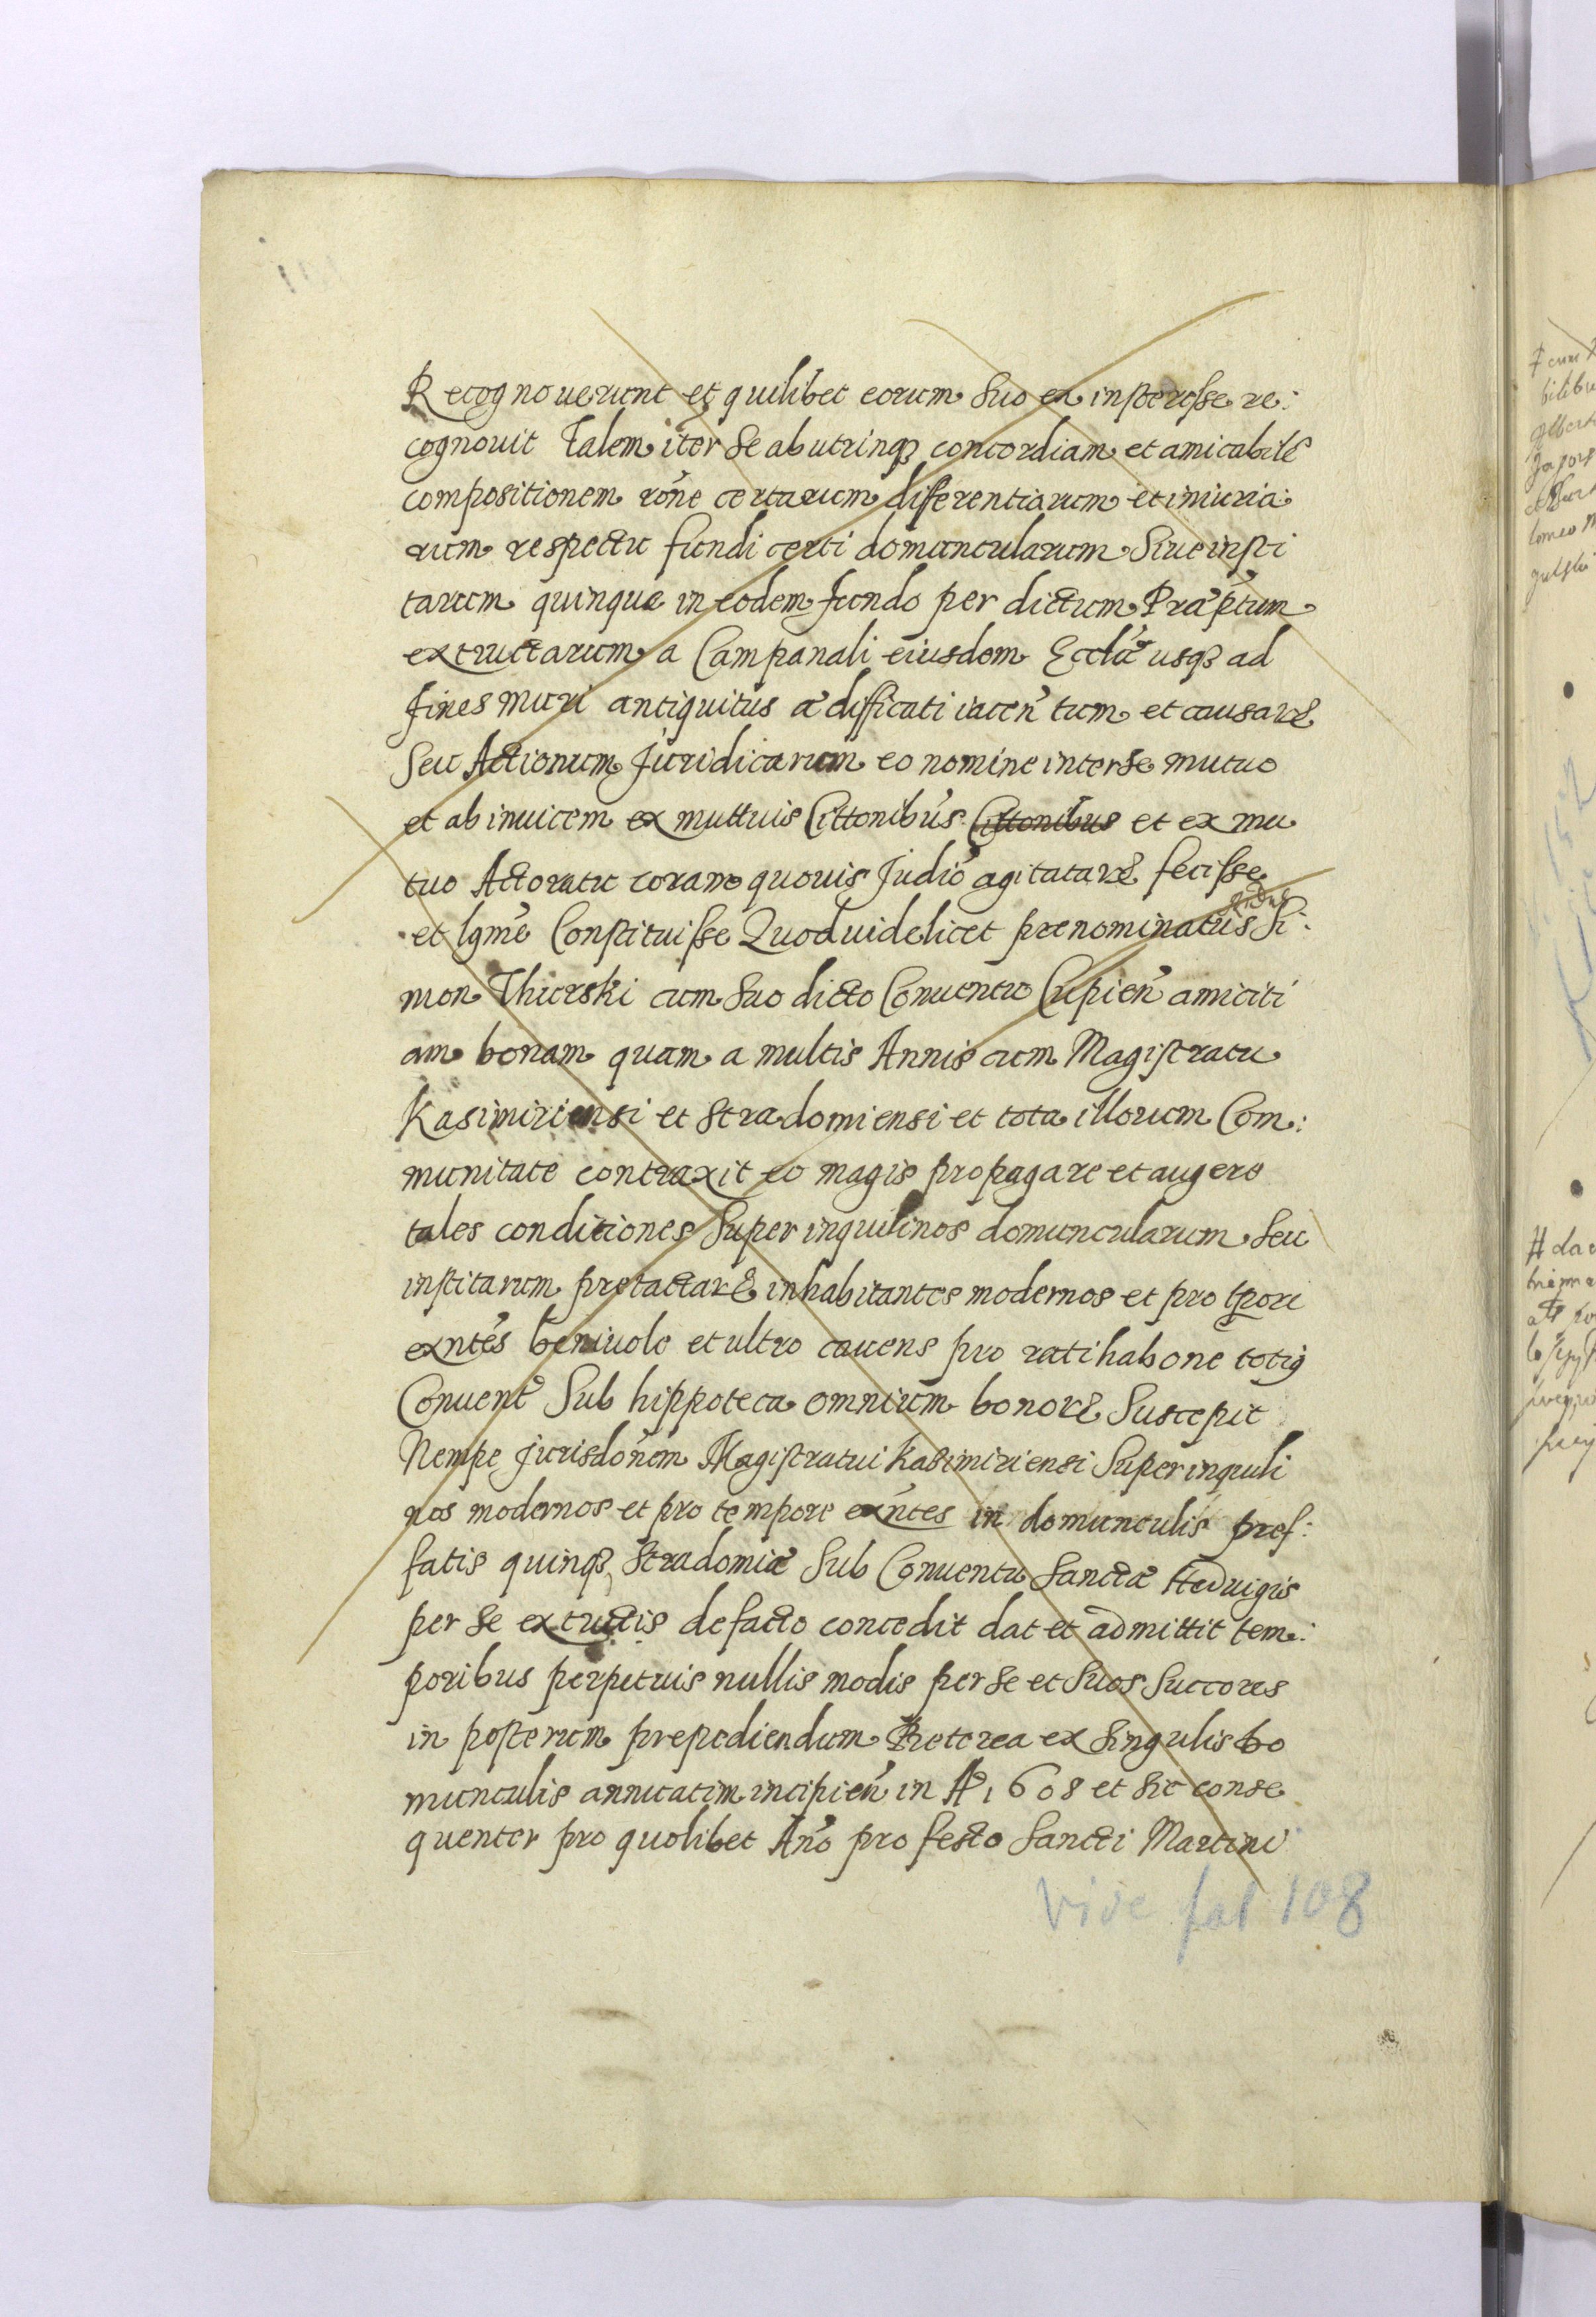 Recognouerunt et quilibet eorum suo ex insteresse re:
cognouit Talem iter se ab utrinq3 concordiam et amicabilē
compositionem rōne certarum differentiarum et iniuria:
rum respectu fundi certi domuncularum siue insti
tarum quinque in eodem fundo per dictum Præptum
extructarum a Campanali eiusdem Ecclæ usq3 ad
fines muri antiquitus ædifficati iacen̄tum et causarꝝ
seu Actionum Juridicarum eo nomine inter se mutuo
et ab inuicem ex muttuis Cittonibus Cittonibus et ex mu
tuo Actoratu coram quouis Judiō agitatarꝝ fecisse
et lgmē Constituisse Quod uidelicet prenominatus Si:
mon Thurski cum suo dicto Conuentu Cupien̄ amiciti
am bonam quam a multis Annis cum Magistratu
Kasimiriensi et Stradomiensi et tota illorum Com:
munitate contraxit eo magis propagare et augere
tales conditiones super inquilinos domuncularum seu
institarum pretactarꝝ inhabitantes modernos et pro tpore
exn̄tes beniuole et ultro cauens pro ratihabone totiꝰ
Conuent̄ sub hippoteca omnium bonorꝝ suscepit
Nempe Jurisdōnem Magistratui Kasimiriensi super inquili
nos modernos et pro tempore exn̄tes in domunculis pref:
fatis quinq3 Stradomiæ sub Conuentu Sanctæ Heduigis
per se extructis de facto concedit dat et admittit tem:
poribus perpetuis nullis modis per se et suos succores
in posterum prepediendum Preterea ex singulis do
munculis annuatim incipien̄ in Aᵒ 1608 et sic conse
quenter pro quolibet An̄o pro festo Sancti Martini
vide fol 108